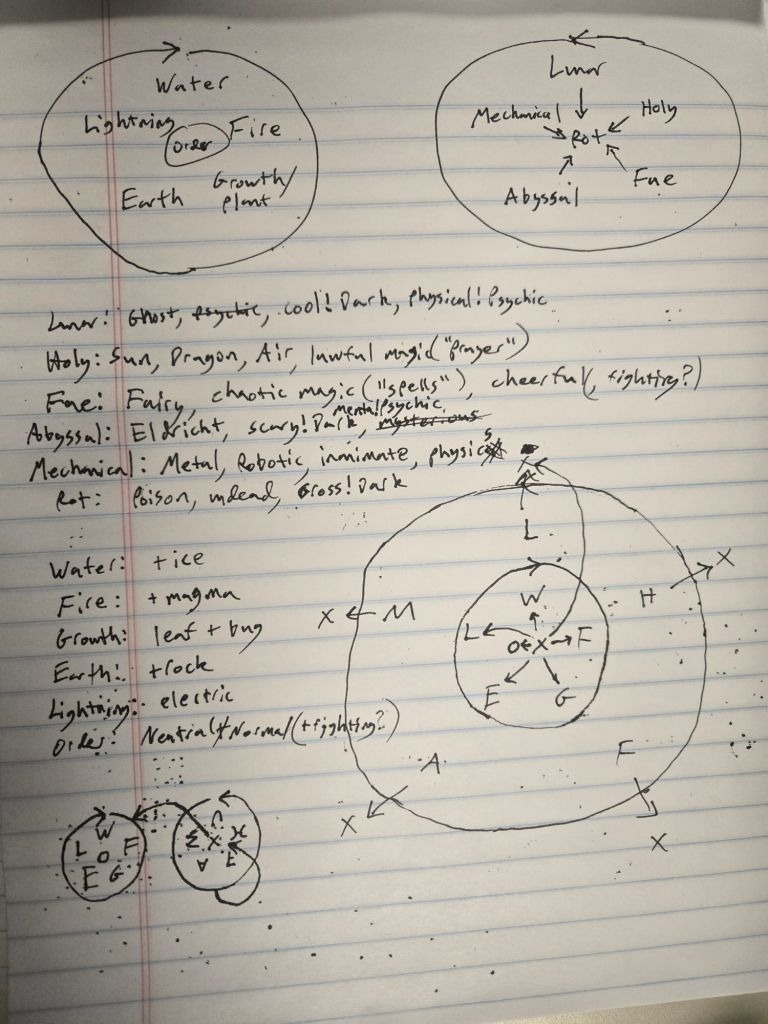 Water
Lightning
Order
Fire
Earth
Growth/
plant
Lunar
Mechanical
Holy
Rot
Abyssal
Fae
Lunar: Ghost, psychic, cool! Dark, physical! Psychic
Holy: Sun, Dragon, Air, lawful magic ("prayer")
Fae: Fairy, chaotic magic ("spells"), cheerful (, fighting?)
mental! Psychic,
Abyssal: Eldricht, scary! Dark, mysterious
Mechanical: Metal, Robotic, inanimate, physics
Rot: Poison, undead, Gross! Dark
Water: + ice
Fire: + magma
Growth: leaf + bug
Earth: + rock
Lightning: electric
Order: Neutral/Normal (+ fighting?)
X
L
X
M
H
X
W
L
O X F
E
G
A
F
X
X
W
L O F
E G
L
M X H
A F